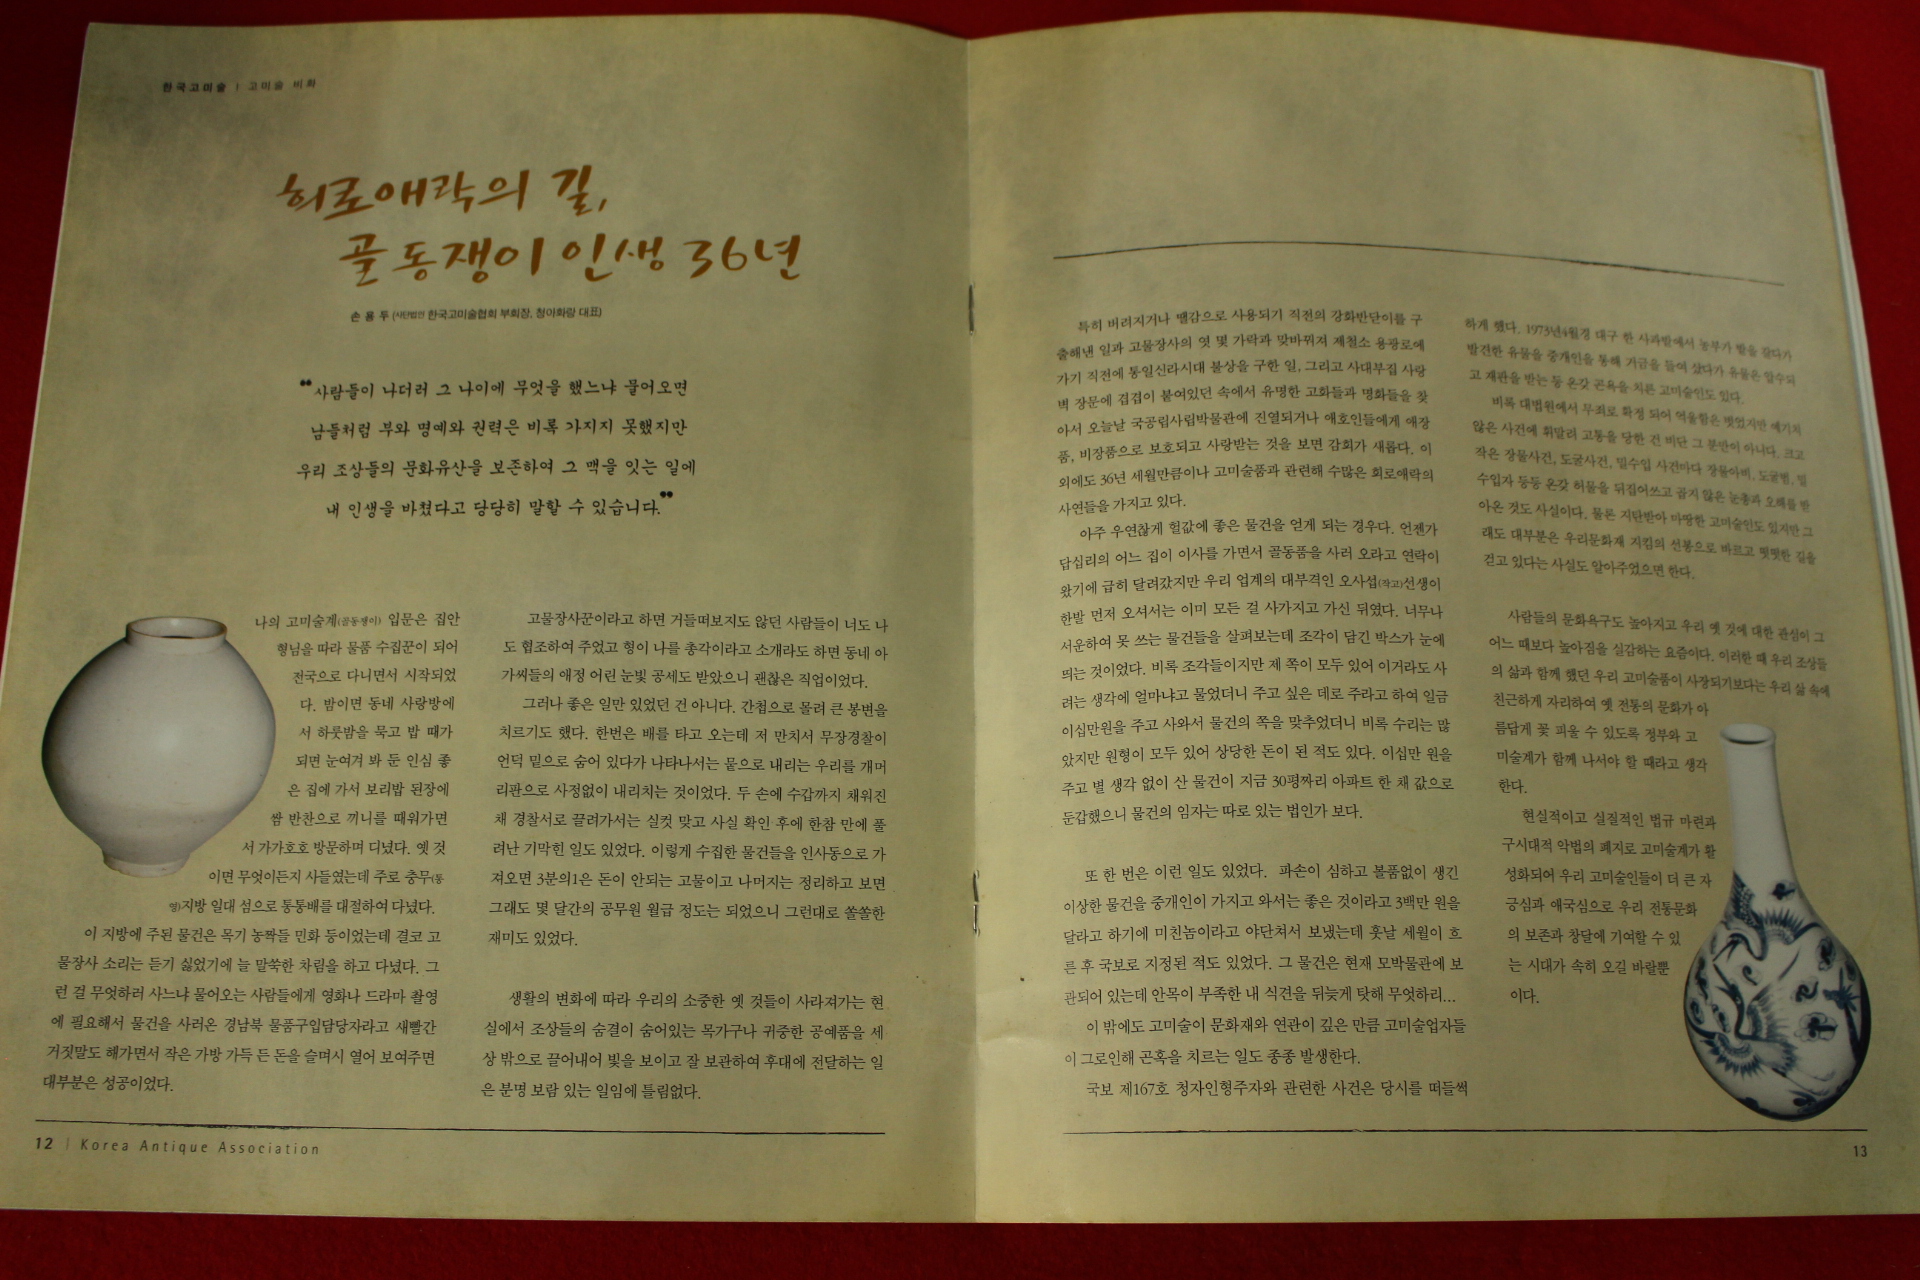 한국고미술 | 고미술 비화
희로애락의 길,
골동쟁이 인생 36년
손 용 두 (사단법인 한국고미술협회 부회장, 청아화랑 대표)
❝사람들이 나더러 그 나이에 무엇을 했느냐 물어오면
남들처럼 부와 명예와 권력은 비록 가지지 못했지만
우리 조상들의 문화유산을 보존하여 그 맥을 잇는 일에
내 인생을 바쳤다고 당당히 말할 수 있습니다.❞
나의 고미술계(골동쟁이) 입문은 집안
형님을 따라 물품 수집꾼이 되어
전국으로 다니면서 시작되었
다. 밤이면 동네 사랑방에
서 하룻밤을 묵고 밥 때가
되면 눈여겨 봐 둔 인심 좋
은 집에 가서 보리밥 된장에
쌈 반찬으로 끼니를 때워가면
서 가가호호 방문하며 다녔다. 옛 것
이면 무엇이든지 사들였는데 주로 충무(통
영)지방 일대 섬으로 통통배를 대절하여 다녔다.
이 지방에 주된 물건은 목기 농짝들 민화 등이었는데 결코 고
물장사 소리는 듣기 싫었기에 늘 말쑥한 차림을 하고 다녔다. 그
런 걸 무엇하러 사느냐 물어오는 사람들에게 영화나 드라마 촬영
에 필요해서 물건을 사러온 경남북 물품구입담당자라고 새빨간
거짓말도 해가면서 작은 가방 가득 든 돈을 슬며시 열어 보여주면
대부분은 성공이었다.
고물장사꾼이라고 하면 거들떠보지도 않던 사람들이 너도 나
도 협조하여 주었고 형이 나를 총각이라고 소개라도 하면 동네 아
가씨들의 애정 어린 눈빛 공세도 받았으니 괜찮은 직업이었다.
그러나 좋은 일만 있었던 건 아니다. 간첩으로 몰려 큰 봉변을
치르기도 했다. 한번은 배를 타고 오는데 저 만치서 무장경찰이
언덕 밑으로 숨어 있다가 나타나서는 뭍으로 내리는 우리를 개머
리판으로 사정없이 내리치는 것이었다. 두 손에 수갑까지 채워진
채 경찰서로 끌려가서는 실컷 맞고 사실 확인 후에 한참 만에 풀
려난 기막힌 일도 있었다. 이렇게 수집한 물건들을 인사동으로 가
져오면 3분의1은 돈이 안되는 고물이고 나머지는 정리하고 보면
그래도 몇 달간의 공무원 월급 정도는 되었으니 그런대로 쏠쏠한
재미도 있었다.
생활의 변화에 따라 우리의 소중한 옛 것들이 사라져가는 현
실에서 조상들의 숨결이 숨어있는 목가구나 귀중한 공예품을 세
상 밖으로 끌어내어 빛을 보이고 잘 보관하여 후대에 전달하는 일
은 분명 보람 있는 일임에 틀림없다.
12 | Korea Antique Association
특히 버려지거나 땔감으로 사용되기 직전의 강화반닫이를 구
출해낸 일과 고물장사의 엿 몇 가락과 맞바꿔져 제철소 용광로에
가기 직전에 통일신라시대 불상을 구한 일, 그리고 사대부집 사랑
벽 장문에 겹겹이 붙여있던 속에서 유명한 고화들과 명화들을 찾
아서 오늘날 국공립사립박물관에 진열되거나 애호인들에게 애장
품, 비장품으로 보호되고 사랑받는 것을 보면 감회가 새롭다. 이
외에도 36년 세월만큼이나 고미술품과 관련해 수많은 희로애락의
사연들을 가지고 있다.
아주 우연찮게 헐값에 좋은 물건을 얻게 되는 경우다. 언젠가
답십리의 어느 집이 이사를 가면서 골동품을 사러 오라고 연락이
왔기에 급히 달려갔지만 우리 업계의 대부격인 오사섭(작고)선생이
한발 먼저 오셔서는 이미 모든 걸 사가지고 가신 뒤였다. 너무나
서운하여 못 쓰는 물건들을 살펴보는데 조각이 담긴 박스가 눈에
띄는 것이었다. 비록 조각들이지만 제 쪽이 모두 있어 이거라도 사
려는 생각에 얼마냐고 물었더니 주고 싶은 데로 주라고 하여 일금
이십만원을 주고 사와서 물건의 쪽을 맞추었더니 비록 수리는 많
았지만 원형이 모두 있어 상당한 돈이 된 적도 있다. 이십만 원을
주고 별 생각 없이 산 물건이 지금 30평짜리 아파트 한 채 값으로
둔갑했으니 물건의 임자는 따로 있는 법인가 보다.
또 한 번은 이런 일도 있었다. 파손이 심하고 볼품없이 생긴
이상한 물건을 중개인이 가지고 와서는 좋은 것이라고 3백만 원을
달라고 하기에 미친놈이라고 야단쳐서 보냈는데 훗날 세월이 흐
른 후 국보로 지정된 적도 있었다. 그 물건은 현재 모박물관에 보
관되어 있는데 안목이 부족한 내 식견을 뒤늦게 탓해 무엇하리...
이 밖에도 고미술이 문화재와 연관이 깊은 만큼 고미술업자들
이 그로인해 곤혹을 치르는 일도 종종 발생한다.
국보 제167호 청자인형주자와 관련한 사건은 당시를 떠들썩
하게 했다. 1973년4월경 대구 한 사과밭에서 농부가 밭을 갈다가
발견한 유물을 중개인을 통해 거금을 들여 샀다가 유물은 압수되
고 재판을 받는 등 온갖 곤욕을 치른 고미술인도 있다.
비록 대법원에서 무죄로 확정 되어 억울함은 벗었지만 예기치
않은 사건에 휘말려 고통을 당한 건 비단 그 분만이 아니다. 크고
작은 장물사건, 도굴사건, 밀수입 사건마다 장물아비, 도굴범, 밀
수입자 등등 온갖 허물을 뒤집어쓰고 곱지 않은 눈총과 오해를 받
아온 것도 사실이다. 물론 지탄받아 마땅한 고미술인도 있지만 그
래도 대부분은 우리문화재 지킴의 선봉으로 바르고 떳떳한 길을
걷고 있다는 사실도 알아주었으면 한다.
사람들의 문화욕구도 높아지고 우리 옛 것에 대한 관심이 그
어느 때보다 높아짐을 실감하는 요즘이다. 이러한 때 우리 조상들
의 삶과 함께 했던 우리 고미술품이 사장되기보다는 우리 삶 속에
친근하게 자리하여 옛 전통의 문화가 아
름답게 꽃 피울 수 있도록 정부와 고
미술계가 함께 나서야 할 때라고 생각
한다.
현실적이고 실질적인 법규 마련과
구시대적 악법의 폐지로 고미술계가 활
성화되어 우리 고미술인들이 더 큰 자
긍심과 애국심으로 우리 전통문화
의 보존과 창달에 기여할 수 있
는 시대가 속히 오길 바랄뿐
이다.
13